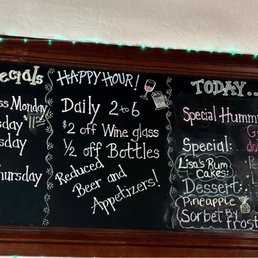 ecials
ss Monday
sday
sday
hursday
HAPPY HOUR!
Daily 2 to 6
$2 off Wine glass
½ off Bottles
Reduced
Beer and
Appetizers!
TODAY...
Special Humm
Special:
Lisa's Rum
Cakes:
Dessert:
Pineapple
Sorbet By
Frost